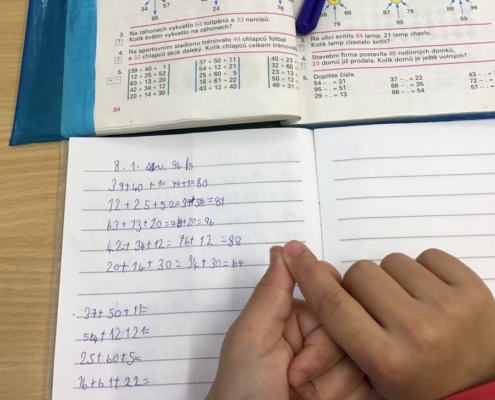 57
65
24
78
3. Na záhonech vykvetlo 54 tulipánů a 33 narcisů.
Kolik květin vykvetlo na záhonech?
4. Na sportovním stadionu trénovalo 44 chlapců fotbal
a 32 chlapců skok daleký. Kolik chlapců celkem trénova
5.
39 + 40 + 1
12 + 25 + 52
63 + 13 + 20
42 + 34 + 12
20 + 14 + 30
37 + 50 + 11
54 + 12 + 21
25 + 60 + 5
16 + 61 + 22
43 + 12 + 40
40 + 23
32 + 60
23 + 13
50 + 12
48 + 31
34
68
66
79
98
3. Na ulici svítilo 84 lamp, 21 lamp zhaslo.
Kolik lamp zůstalo svítit?
4. Stavební firma postavila 45 rodinných domků,
23 domků již prodala. Kolik domků je ještě volných?
5. Doplňte čísla.
54 - . = 31
95 - . = 51
29 - . = 13
37 - . = 22
68 - . = 35
86 - . = 54
43 - . =
72 - . =
57 - .
8. 1. cv. 34/5
39+40+1= 79+1=80
12+25+52=37+52=89
63+13+20=76+20=96
42+34+12= 76+12=88
20+14+30= 34+30=64
37+50+11=
54+12+21=
25+60+5=
16+61+22=